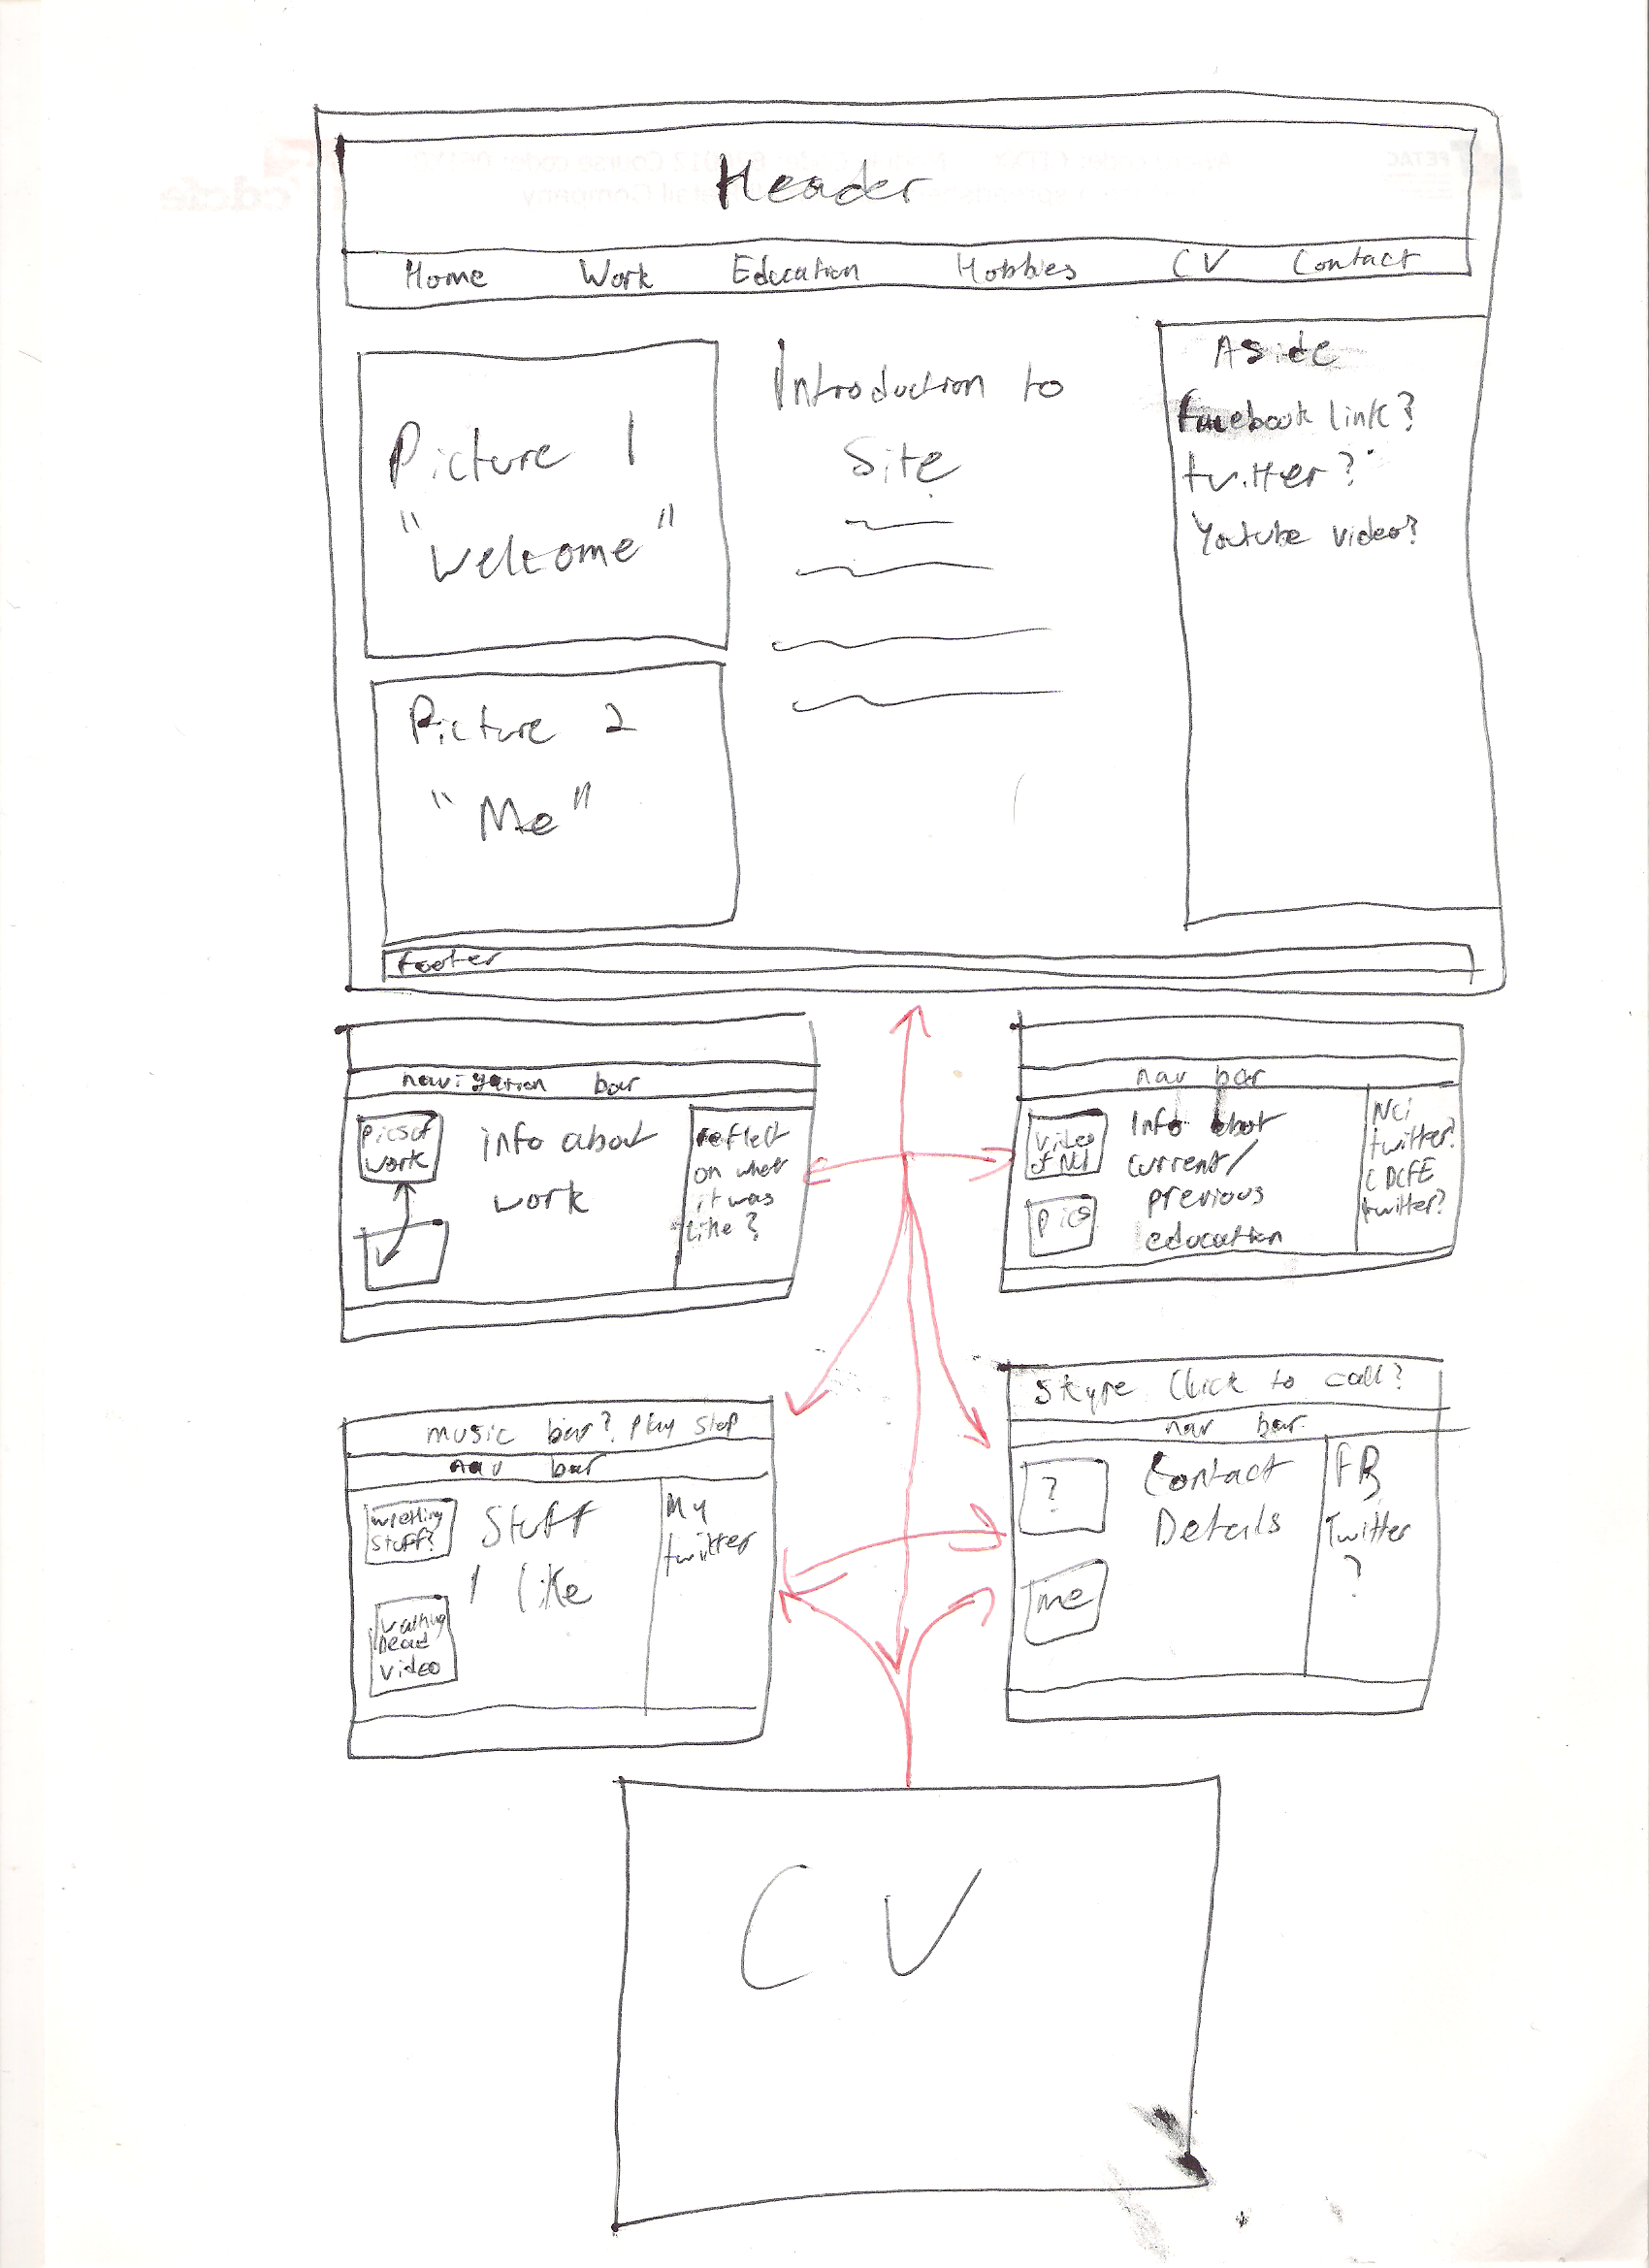 Header
Home Work Education Hobbies CV Contact
Picture 1
"Welcome"
Picture 2
"Me"
Introduction to
Site
Aside
Facebook link?
twitter?
Youtube video?
footer
navigation bar
pics of
work
info about
work
reflect
on what
it was
like?
nav bar
video
of NCI
pics
Info about
current/
previous
education
NCI
twitter?
CDCFE
twitter?
music bar? Play Stop
nav bar
wrestling
stuff?
Walking
Dead
video
Stuff
I like
My
twitter
Skype Click to call?
nav bar
?
me
Contact
Details
FB
Twitter
?
CV